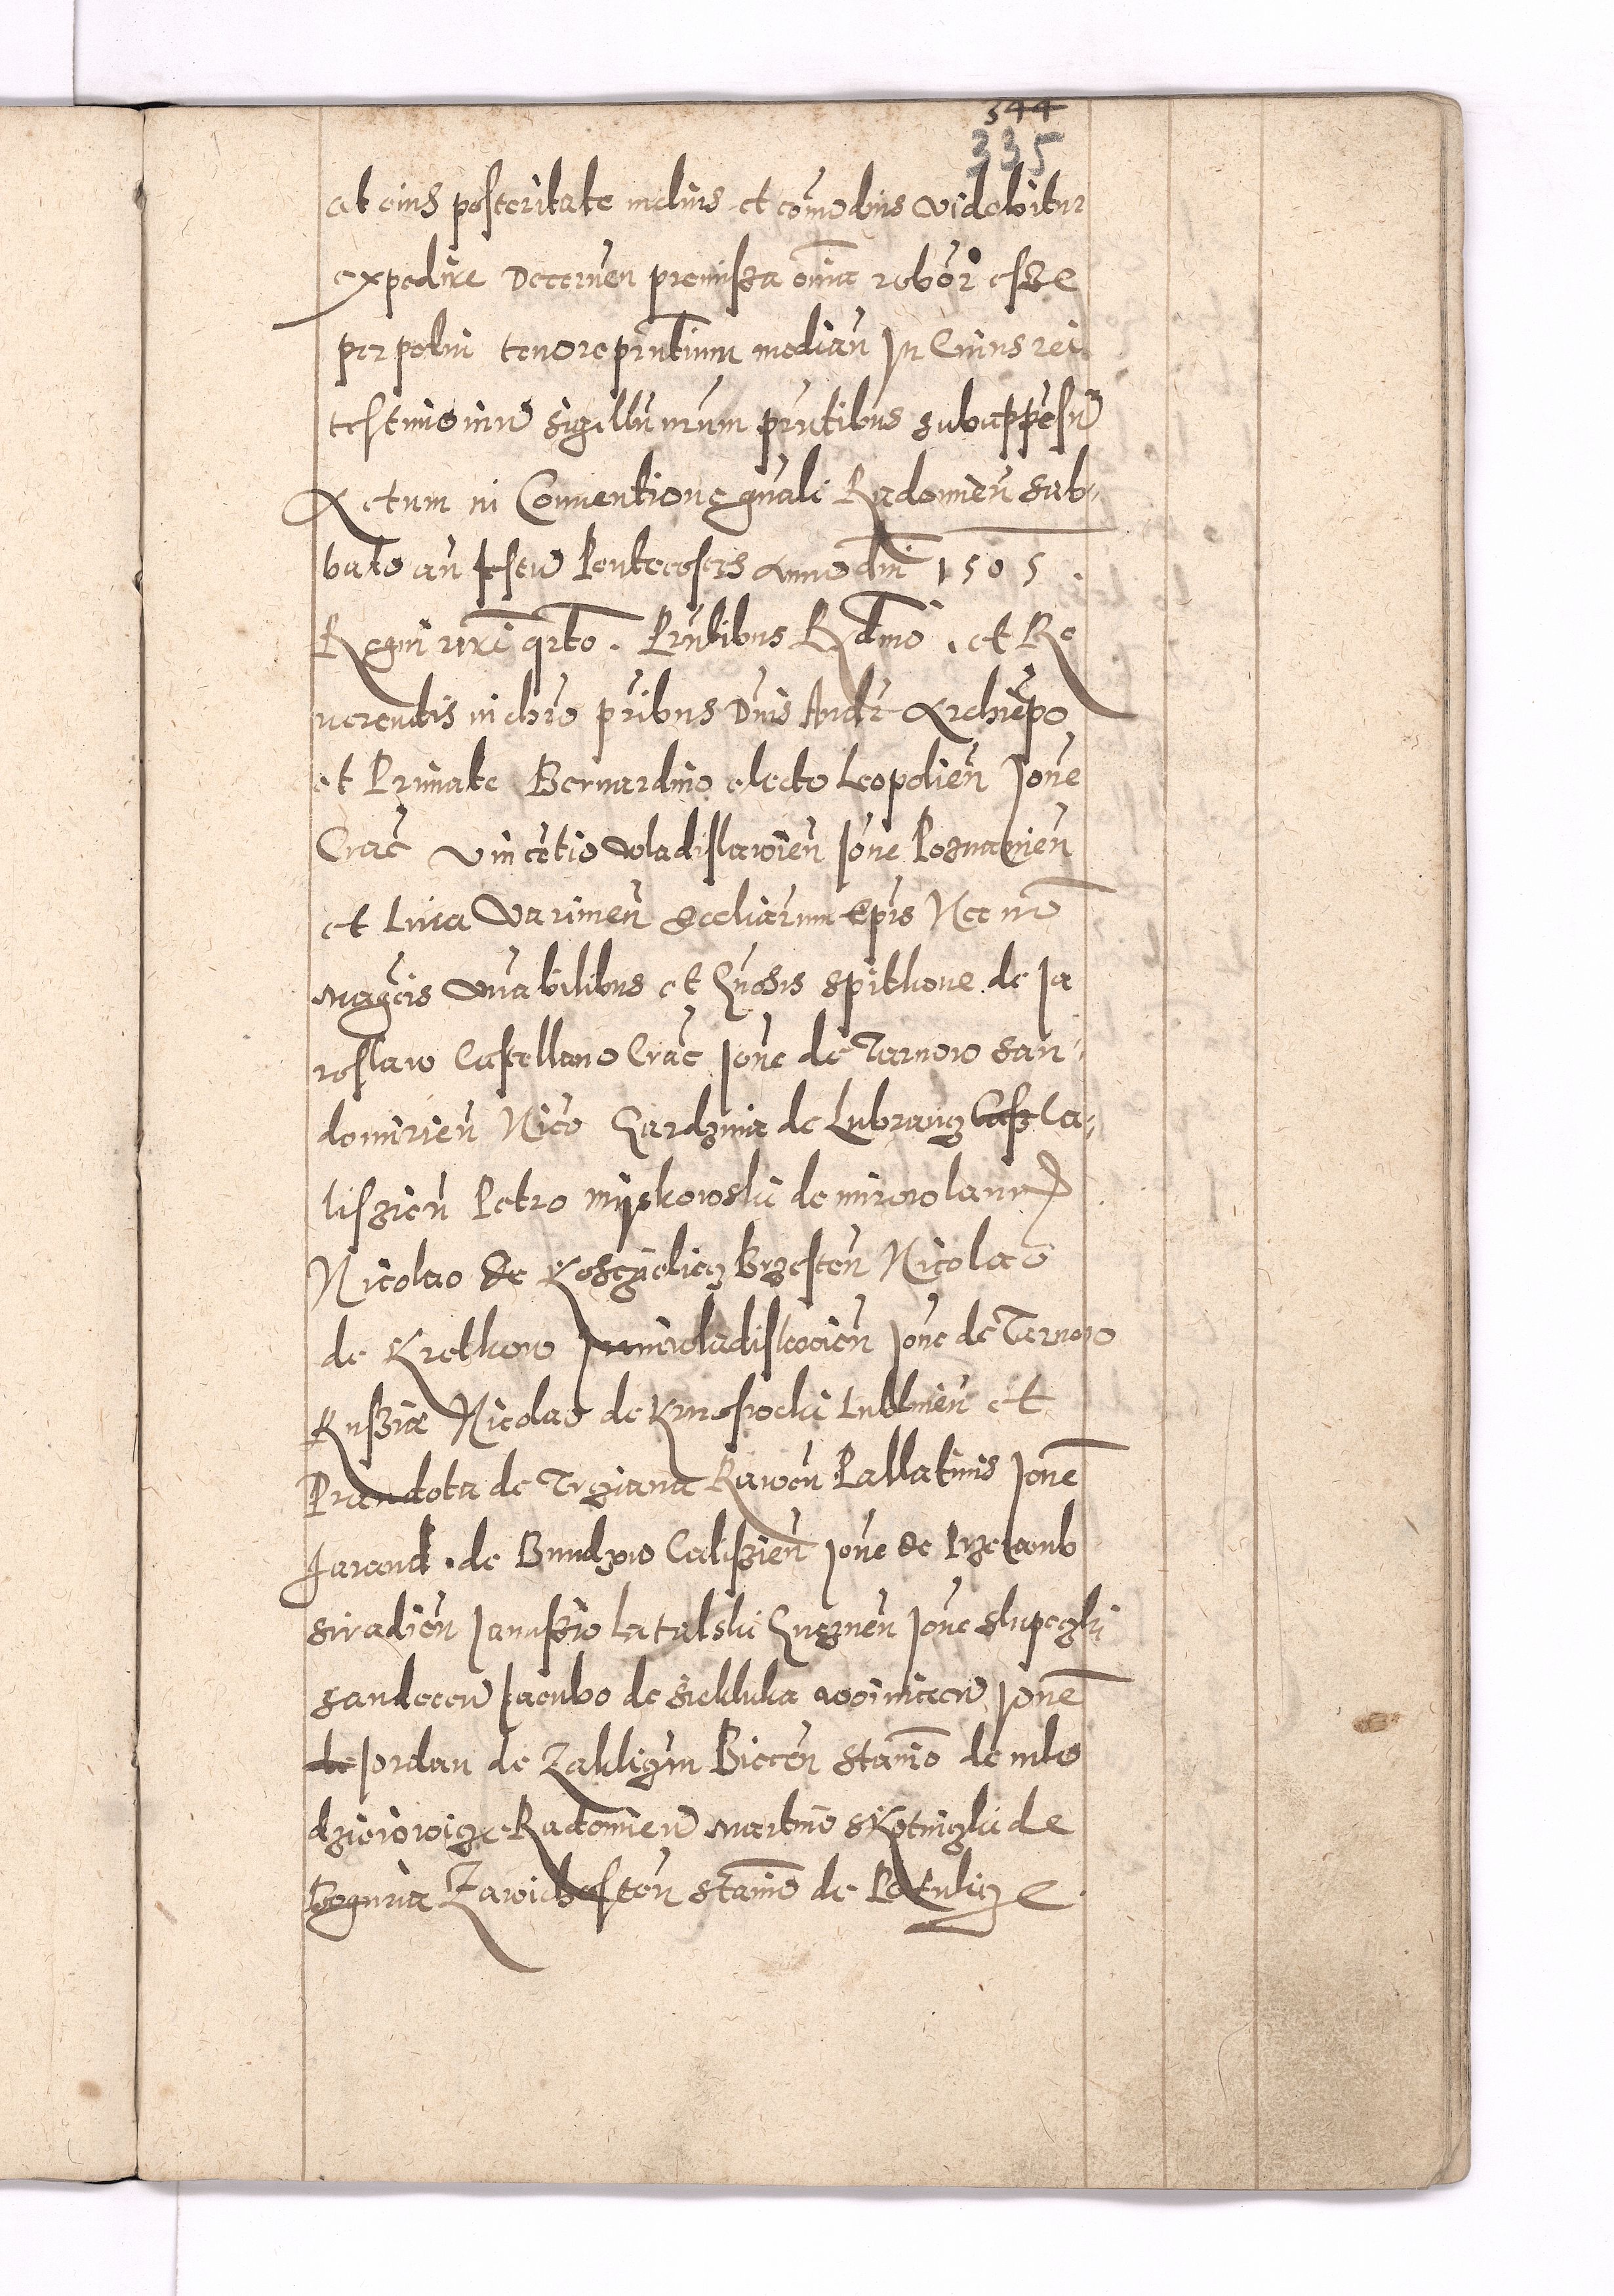 344
335
et eius posteritate melius et comodius videbitur
expedire Decernen premissa omnia robor essse
perpetui tenore pntium median In Cuius rei
testimoniu sigillu nrum pntibus subappesu
Actum in Conuentione gnali Radomien sab-
bato an festu Pentecostes Anno dni 1505.
Regni nri qrto. Pntibus Rdmo. et Re
uerendis in chro pribus Dnis Andr Archiepo
et Primate Bernardino electo Leopolien Jone
Crac Vincetio Wladislawien Jone Posnanien
et Luca Varmien Eccliarum Epis Nec no
magcis Mnabilibus et Gnosis Spithone de Ja
roslaw Castellano Crac Jone de Tarnow San-
domirien Nico Gardzina de Lubrancz Ca-
liszien Petro Myskowski de mirow lanci
Nicolao de Koscyelecz Brzesten Nicolao
de Kretkow Juniwladislavien Jone de Tarnow
Russiæ Nicolao de Kurospwcki Lublinen et
Prandota de Trzciana Rawen Pallatinis Jone
Jarand. de Brudzewo Calissien Jone de Przeramb
Siradien Janussio Latalski Gneznen Jone Slupeczki
Sandecen Jacubo de Sieklukа Woinicen Jone
Jordan de Zakliczin Biecen Stanio de mlo
dzieiowicze Radomien Martino Skotniczki de
Bogoria Zawichosten Stanio de Potulicze